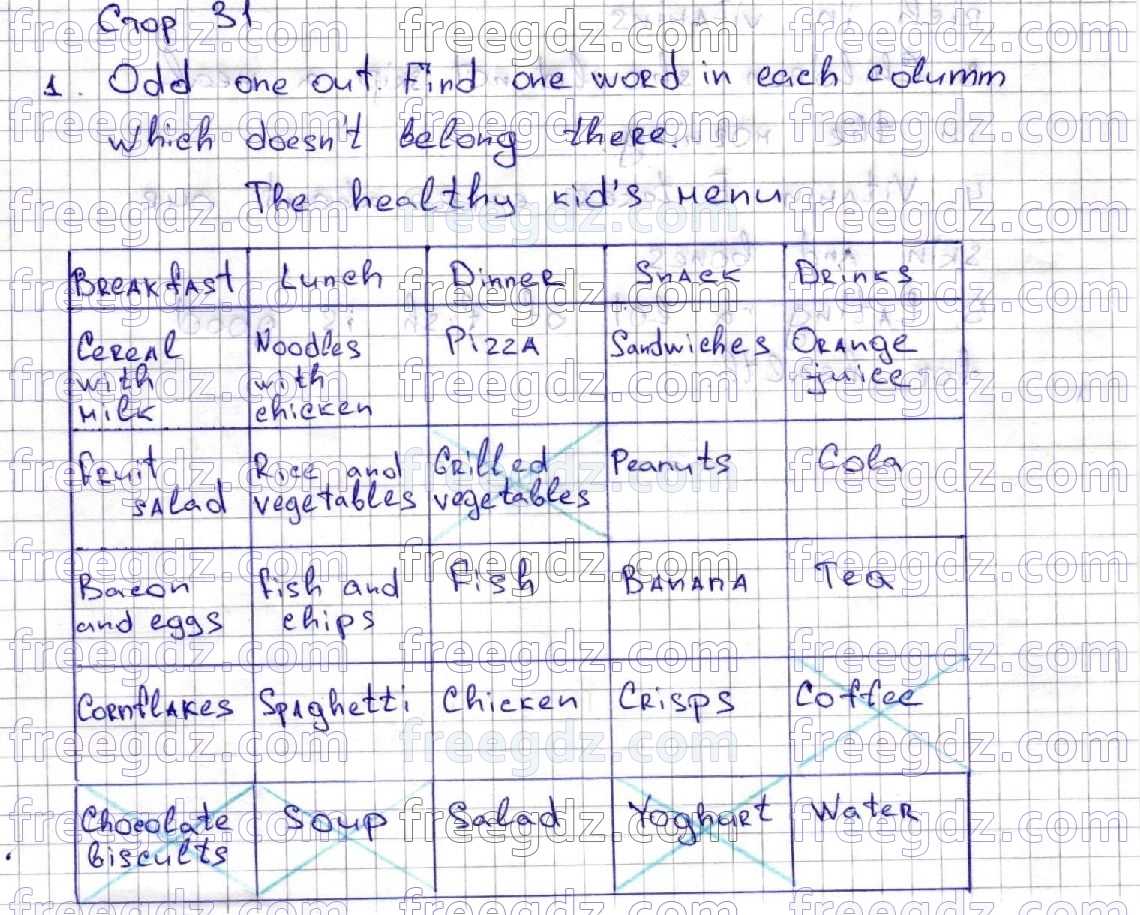 Стор 31
1. Odd one out. Find one word in each columm
which doesn't belong there.
The healthy kid's menu
Breakfast Lunch Dinner Snack Drinks
Cereal with milk Noodles with chicken Pizza Sandwiches Orange juice
Fruit salad Rice and vegetables Grilled vegetables Peanuts Cola
Bacon and eggs Fish and chips Fish Banana Tea
Cornflakes Spaghetti Chicken Crisps Coffee
Chocolate biscuits Soup Salad Yoghurt Water
freegdz.com